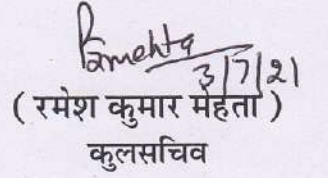 Rmehta
3/7/21
( रमेश कुमार मेहता )
कुलसचिव